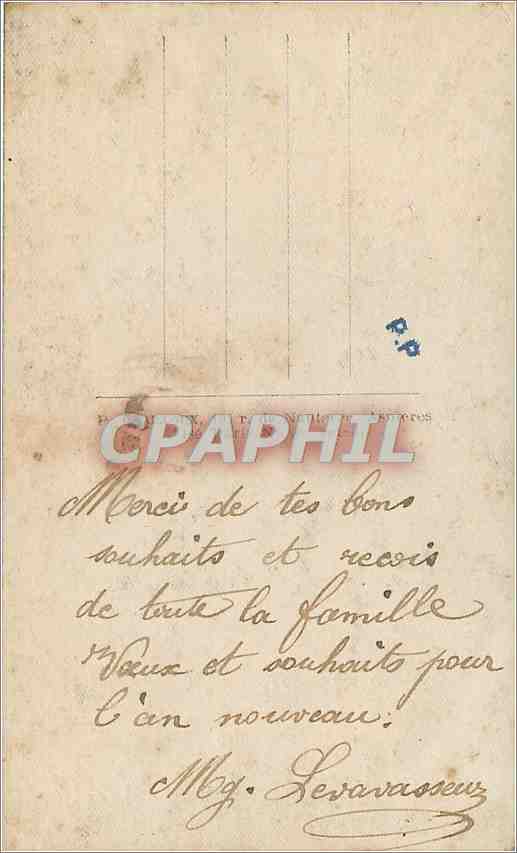 P.P
r. de Nanterre, Asnières
CPAPHIL
Merci de tes bons
souhaits et recois
de toute la famille
Vœux et souhaits pour
l'an nouveau.
Mg. Levavasseur